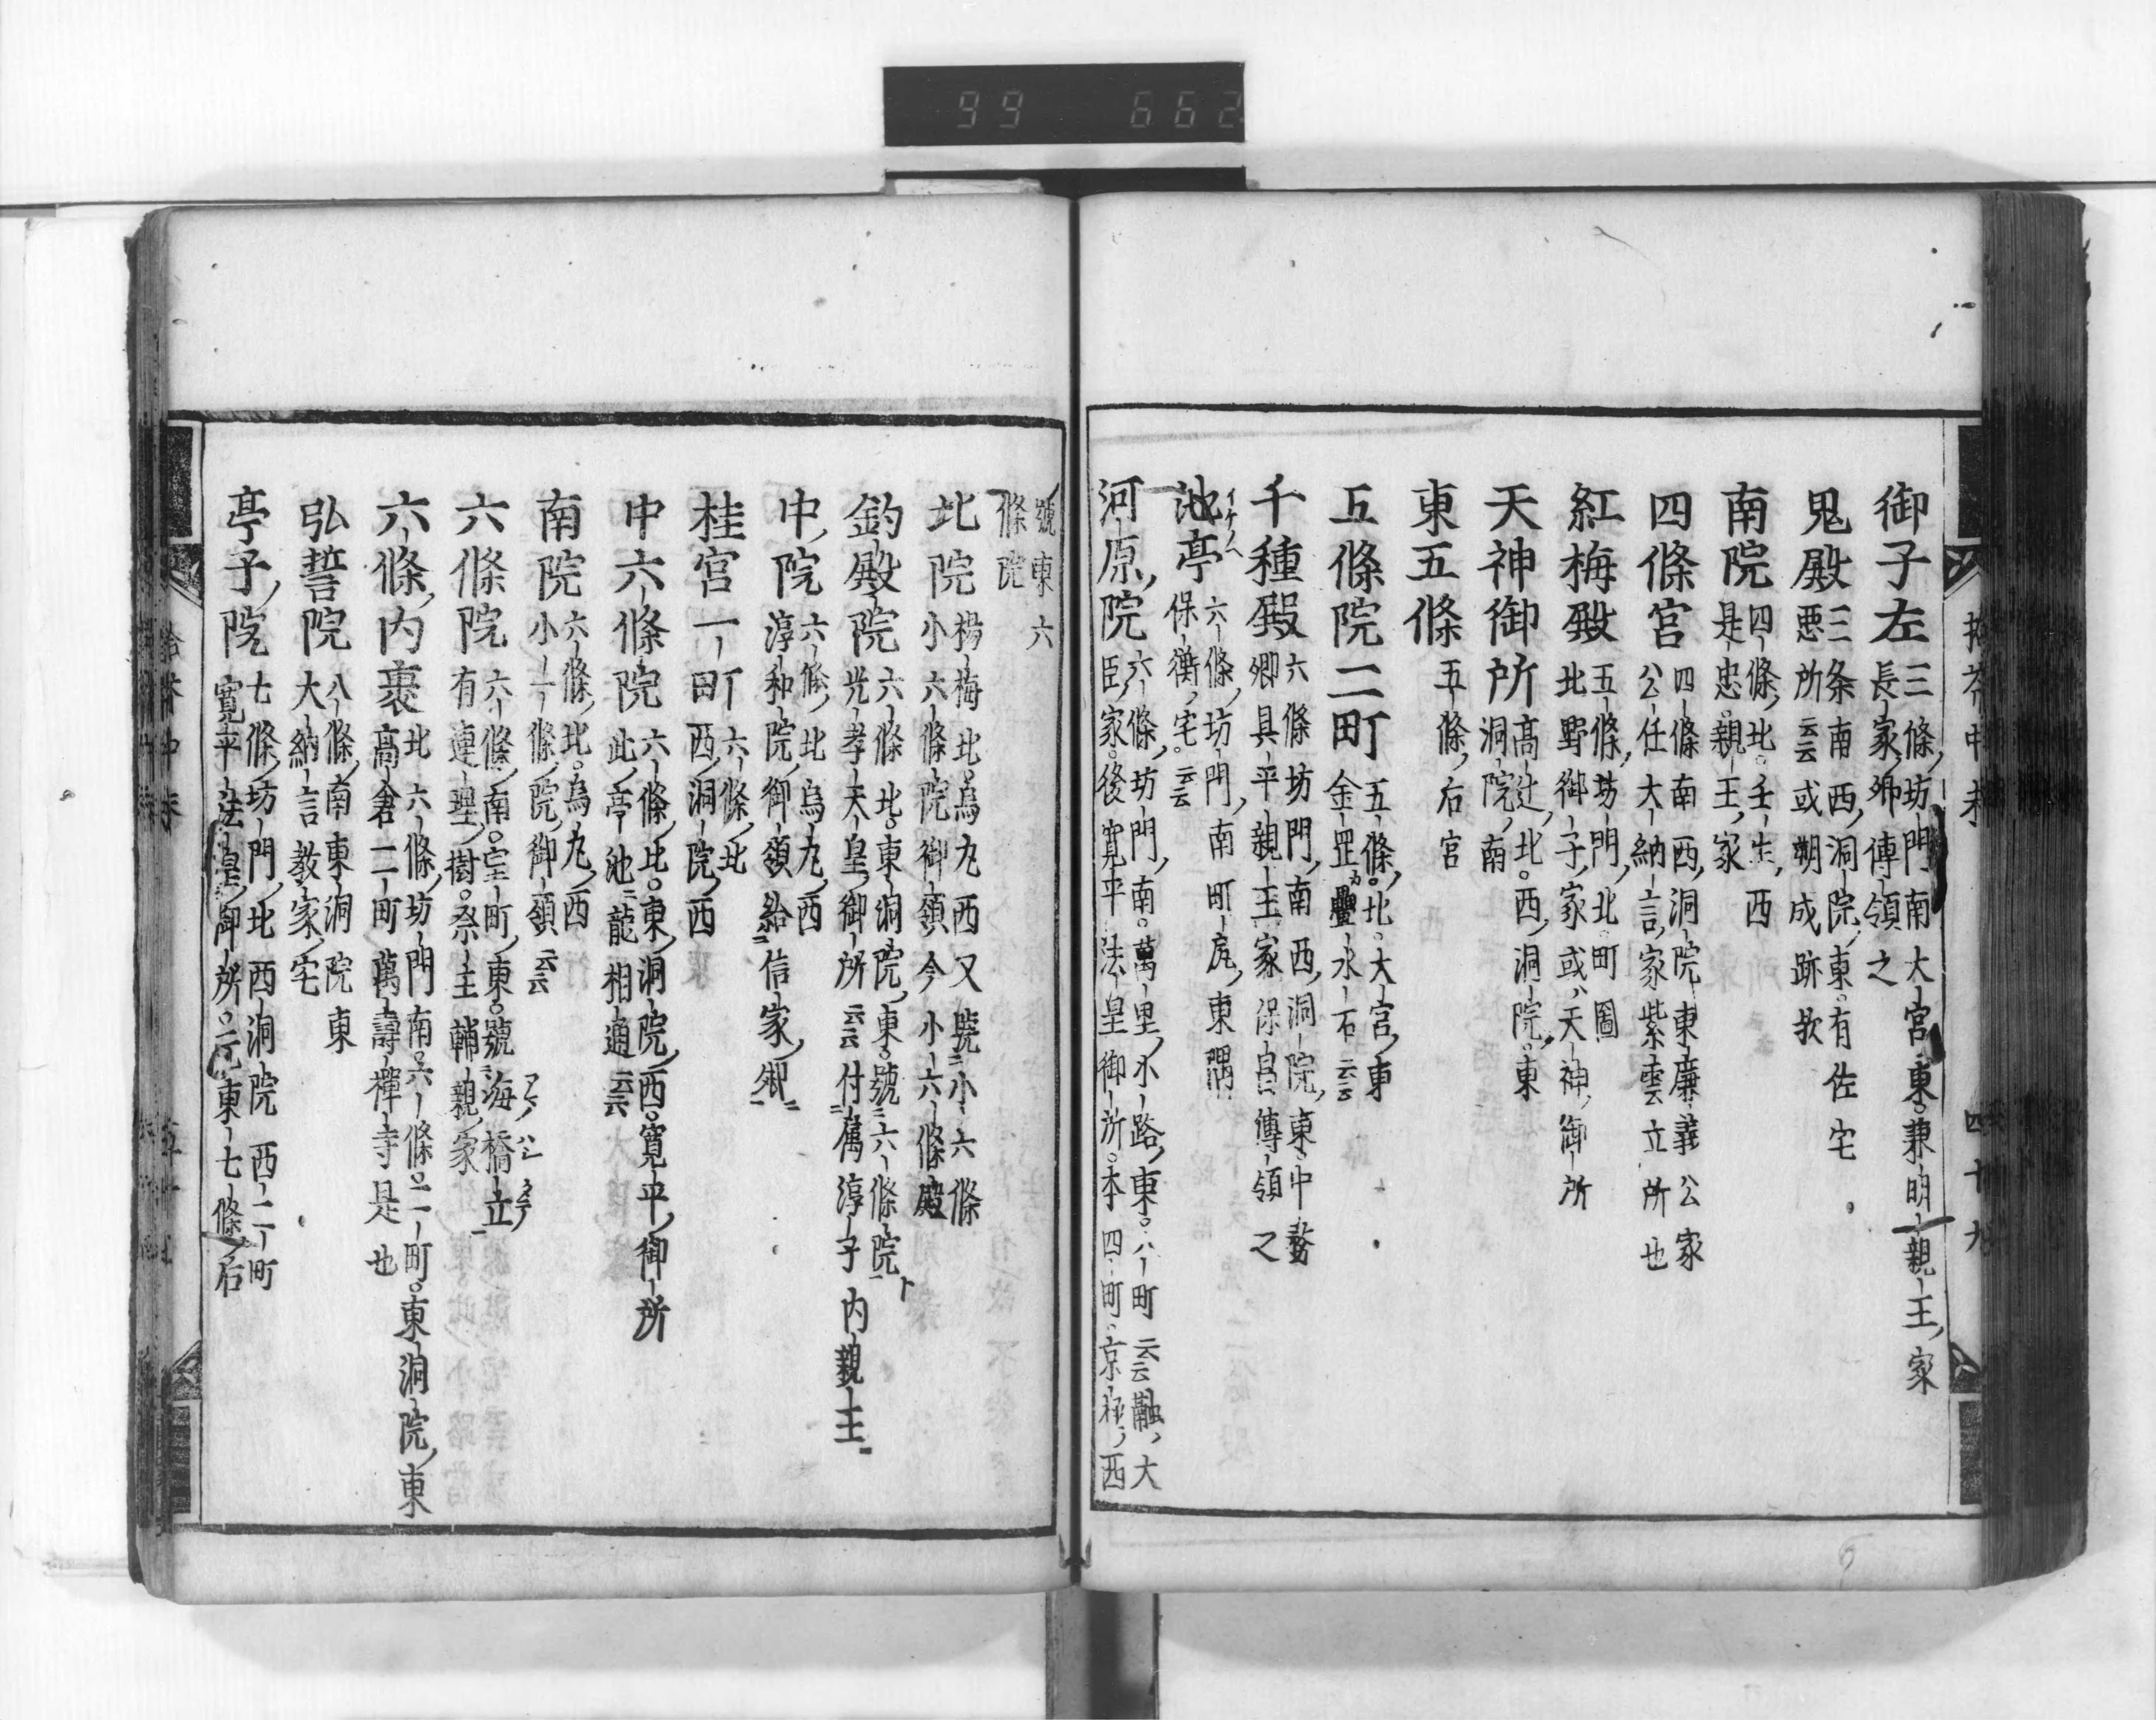 99 662
御子左 三條坊門南大宮東兼明親王家
長家卿傳領之
鬼殿 三条南西洞院東有佐宅
悪所云云或朔成跡歟
南院 四條北壬生西
是忠親王家
四條宮 四條南西洞院東廉義公家
公任大納言家紫雲立所也
紅梅殿 五條坊門北町圖
北野御子家或天神御所
天神御所 高辻北西洞院東
洞院南
東五條 五條后宮
五條院二町 五條北大宮東
金罡疊水石云云
千種殿 六條坊門南西洞院東中務
卿具平親王家保昌傳領之
池亭 六條坊門南町尻東隅
保衡宅云云
河原院 六條坊門南萬里小路東八町云云融大
臣家後寛平法皇御所本四町京極西
拾芥中末 四十九
號東六
條院
北院 楊梅北烏丸西又號小六條
小六條院御領今小六條殿
釣殿院 六條北東洞院東號六條院
光孝天皇御所云云付属淳子内親王
中院 六條北烏丸西
淳和院御領給信家卿
桂宮一町 六條北
西洞院西
中六條院 六條北東洞院西寛平御所
此亭池龍相通云云
南院 六條北烏丸西
小一條院御領云云
六條院 六條南室町東號海橋立
有連理樹祭主輔親家
六條内裏 北六條坊門南六條二町東洞院東
高倉二町萬壽禪寺是也
弘誓院 八條南東洞院東
大納言教家宅
亭子院 七條坊門北西洞院西二町
寛平法皇御所元東七條后